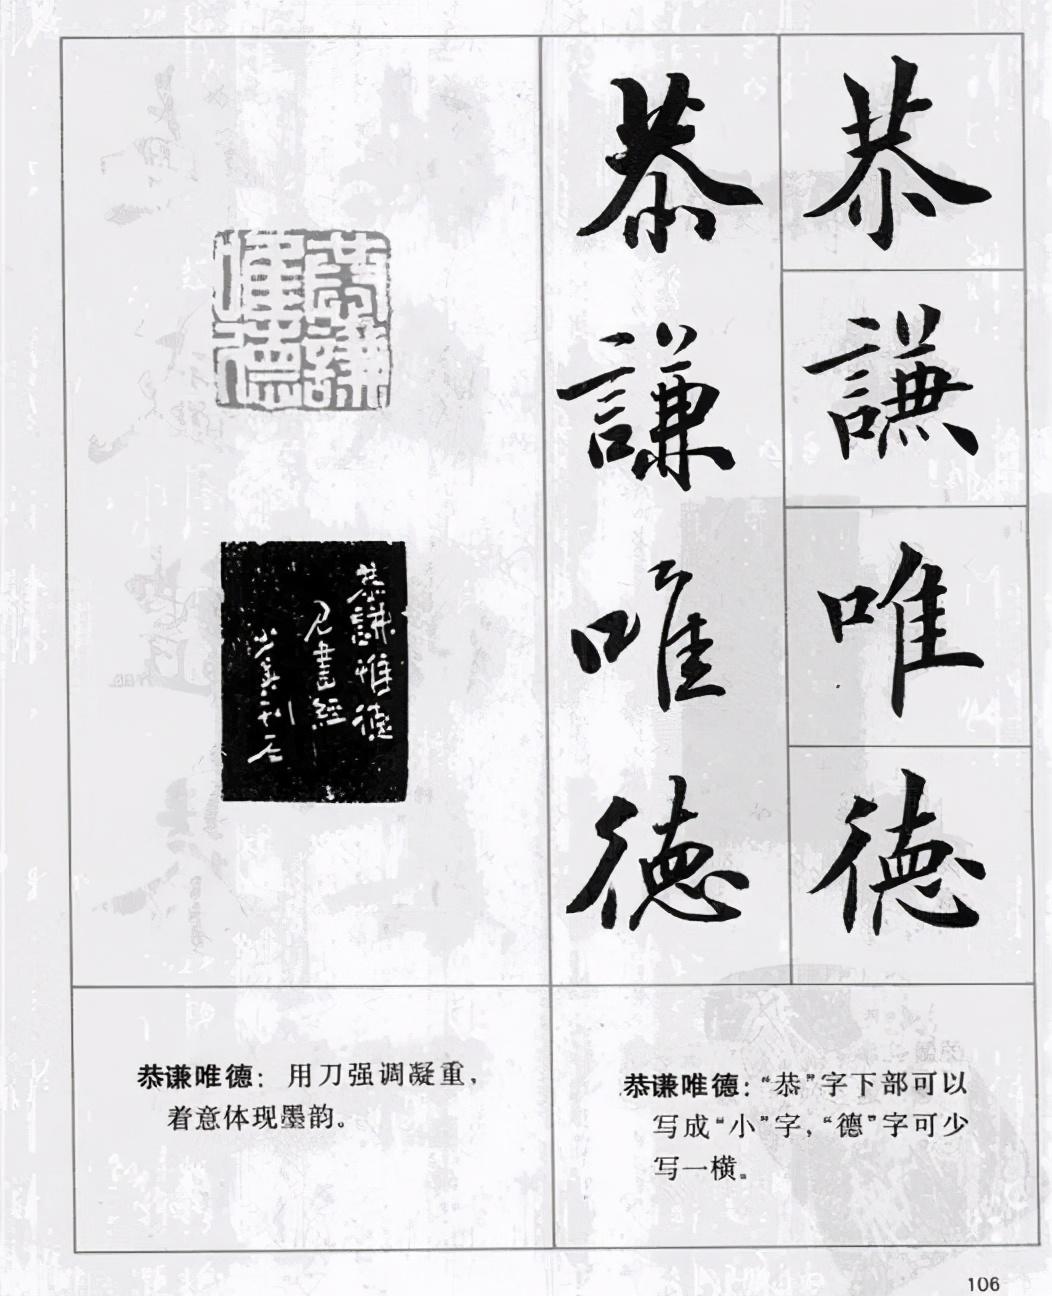 恭謙唯德
恭謙唯德
恭謙惟德
恭謙惟德
見書經
少眞刊石
恭谦唯德：“恭”字下部可以
写成“小”字，“德”字可少
写一横。
恭谦唯德：用刀强调凝重，
着意体现墨韵。
106